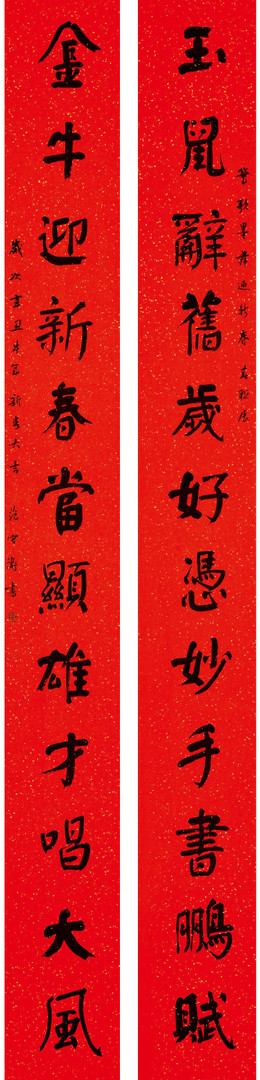 歌舞迎新春
玉鼠辭舊歲好憑妙手書鵬賦
金牛迎新春當顯雄才唱大風
歲次辛丑牛年新春大吉 書